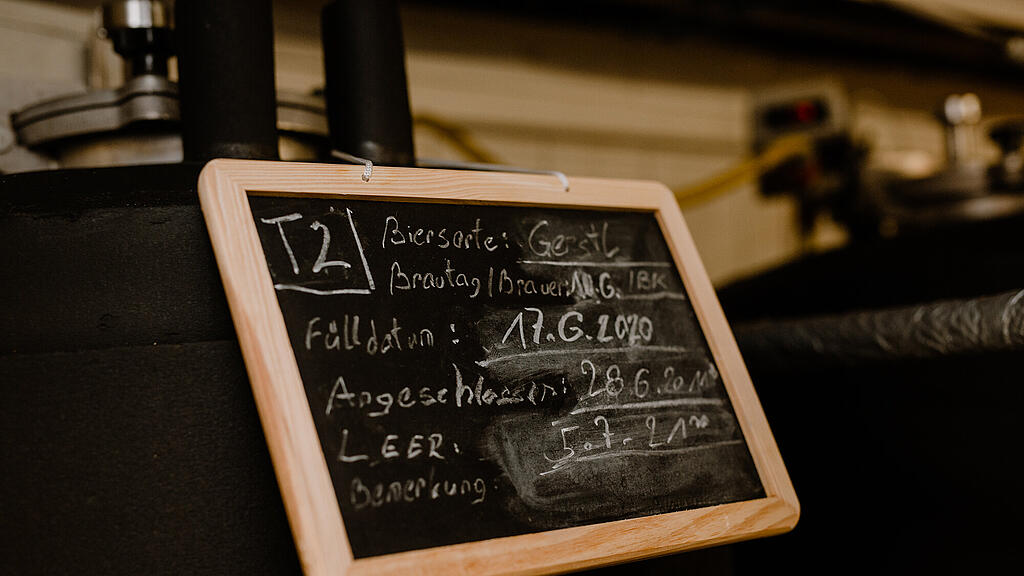 T2
Biersorte: Gerstl
Brautag/Brauer: 10.6. /BK
Fülldatum: 17.6.2020
Angeschlossen: 28.6.20
LEER: 5.7. - 21⁰⁰
Bemerkung: